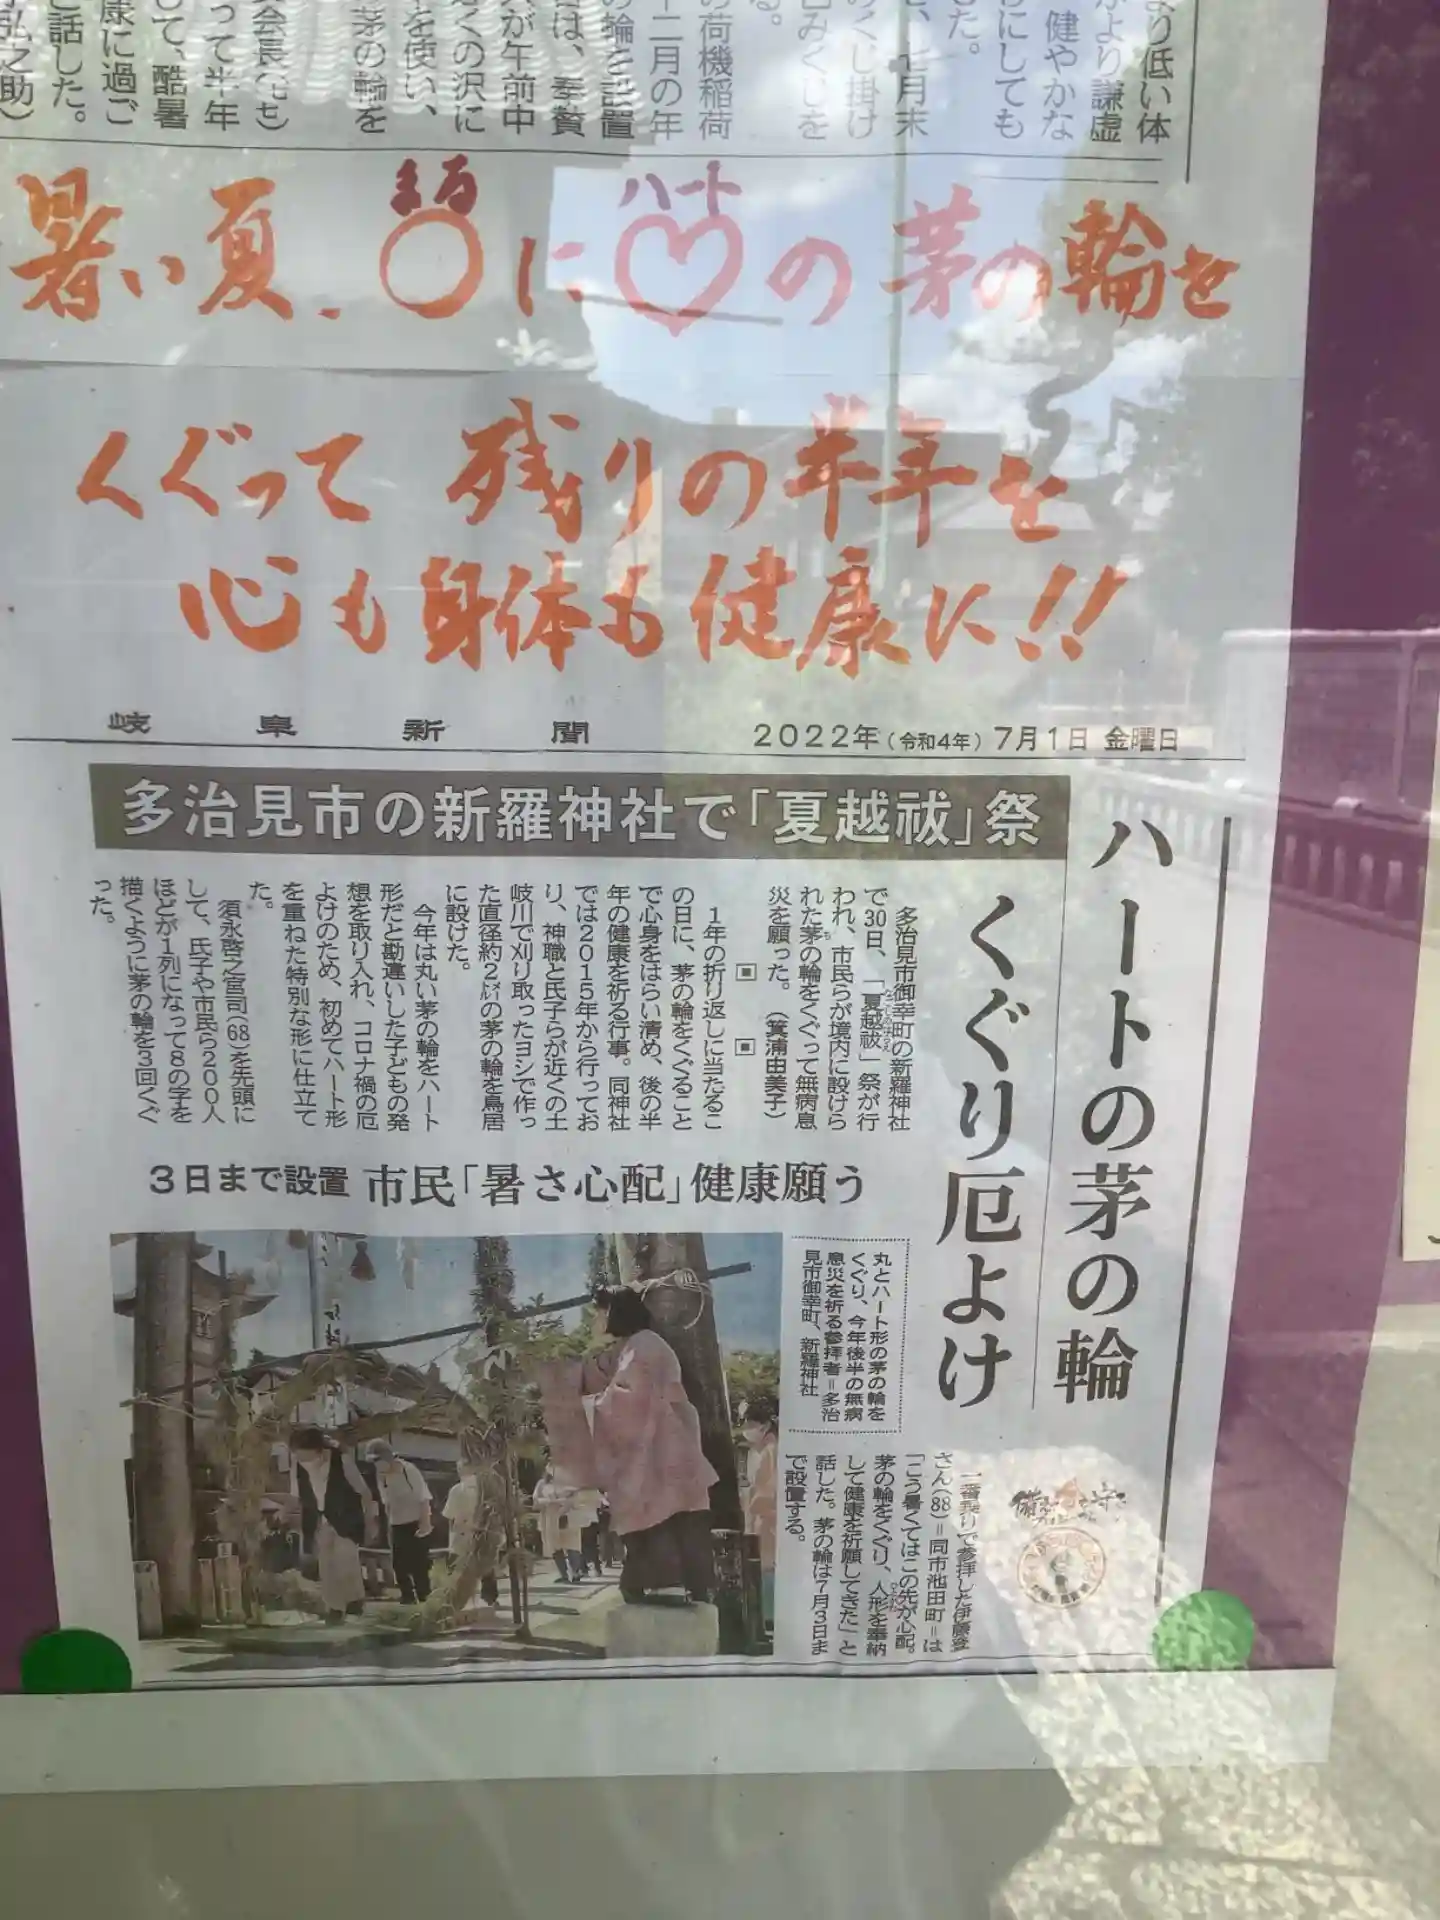 より低い体
がより謙虚
健やかな
にしても
した。
、七月末
くじ掛け
みくじを
る。
の荷機稲荷
十二月の年
の輪を設置
は、奉賛
が午前中
くの沢に
を使い、
茅の輪を
会長
って半年
して、酷暑
康に過ご
と話した。
弘之助）
まる ハート
暑い夏、〇に♡の茅の輪を
くぐって残りの半年を
心も身体も健康に!!
岐阜新聞 2022年（令和4年）7月1日 金曜日
多治見市の新羅神社で「夏越祓」祭
ハートの茅の輪
くぐり厄よけ
多治見市御幸町の新羅神社
で30日、「夏越祓」祭が行
われ、市民らが境内に設けら
れた茅の輪をくぐって無病息
災を願った。（箕浦由美子）
1年の折り返しに当たるこ
の日に、茅の輪をくぐること
で心身をはらい清め、後の半
年の健康を祈る行事。同神社
では2015年から行ってお
り、神職と氏子らが近くの土
岐川で刈り取ったヨシで作っ
た直径約2㍍の茅の輪を鳥居
に設けた。
今年は丸い茅の輪をハート
形だと勘違いした子どもの発
想を取り入れ、コロナ禍の厄
よけのため、初めてハート形
を重ねた特別な形に仕立て
た。
須永啓之宮司（68）を先頭に
して、氏子や市民ら200人
ほどが1列になって8の字を
描くように茅の輪を3回くぐ
った。
3日まで設置 市民「暑さ心配」健康願う
丸とハート形の茅の輪を
くぐり、今年後半の無病
息災を祈る参拝者＝多治
見市御幸町、新羅神社
一番乗りで参拝した伊藤登
さん（88）＝同市池田町＝は
「こう暑くてはこの先が心配。
茅の輪をくぐり、人形を奉納
して健康を祈願してきた」と
話した。茅の輪は7月3日ま
で設置する。